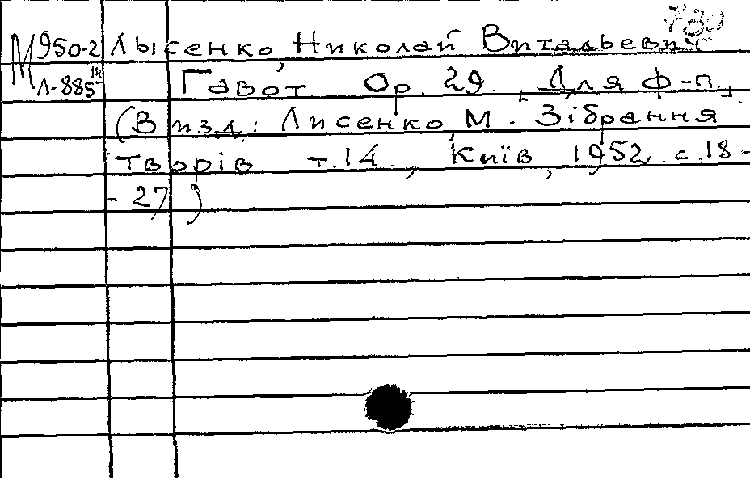 М 950-2 Лысенко, Николай Витальевич
Л-885 III Гавот Ор. 29. Для ф-п.
(В изд.: Лисенко, М. Зібрання
творів т. 14, Київ, 1952, с. 18-
-27)